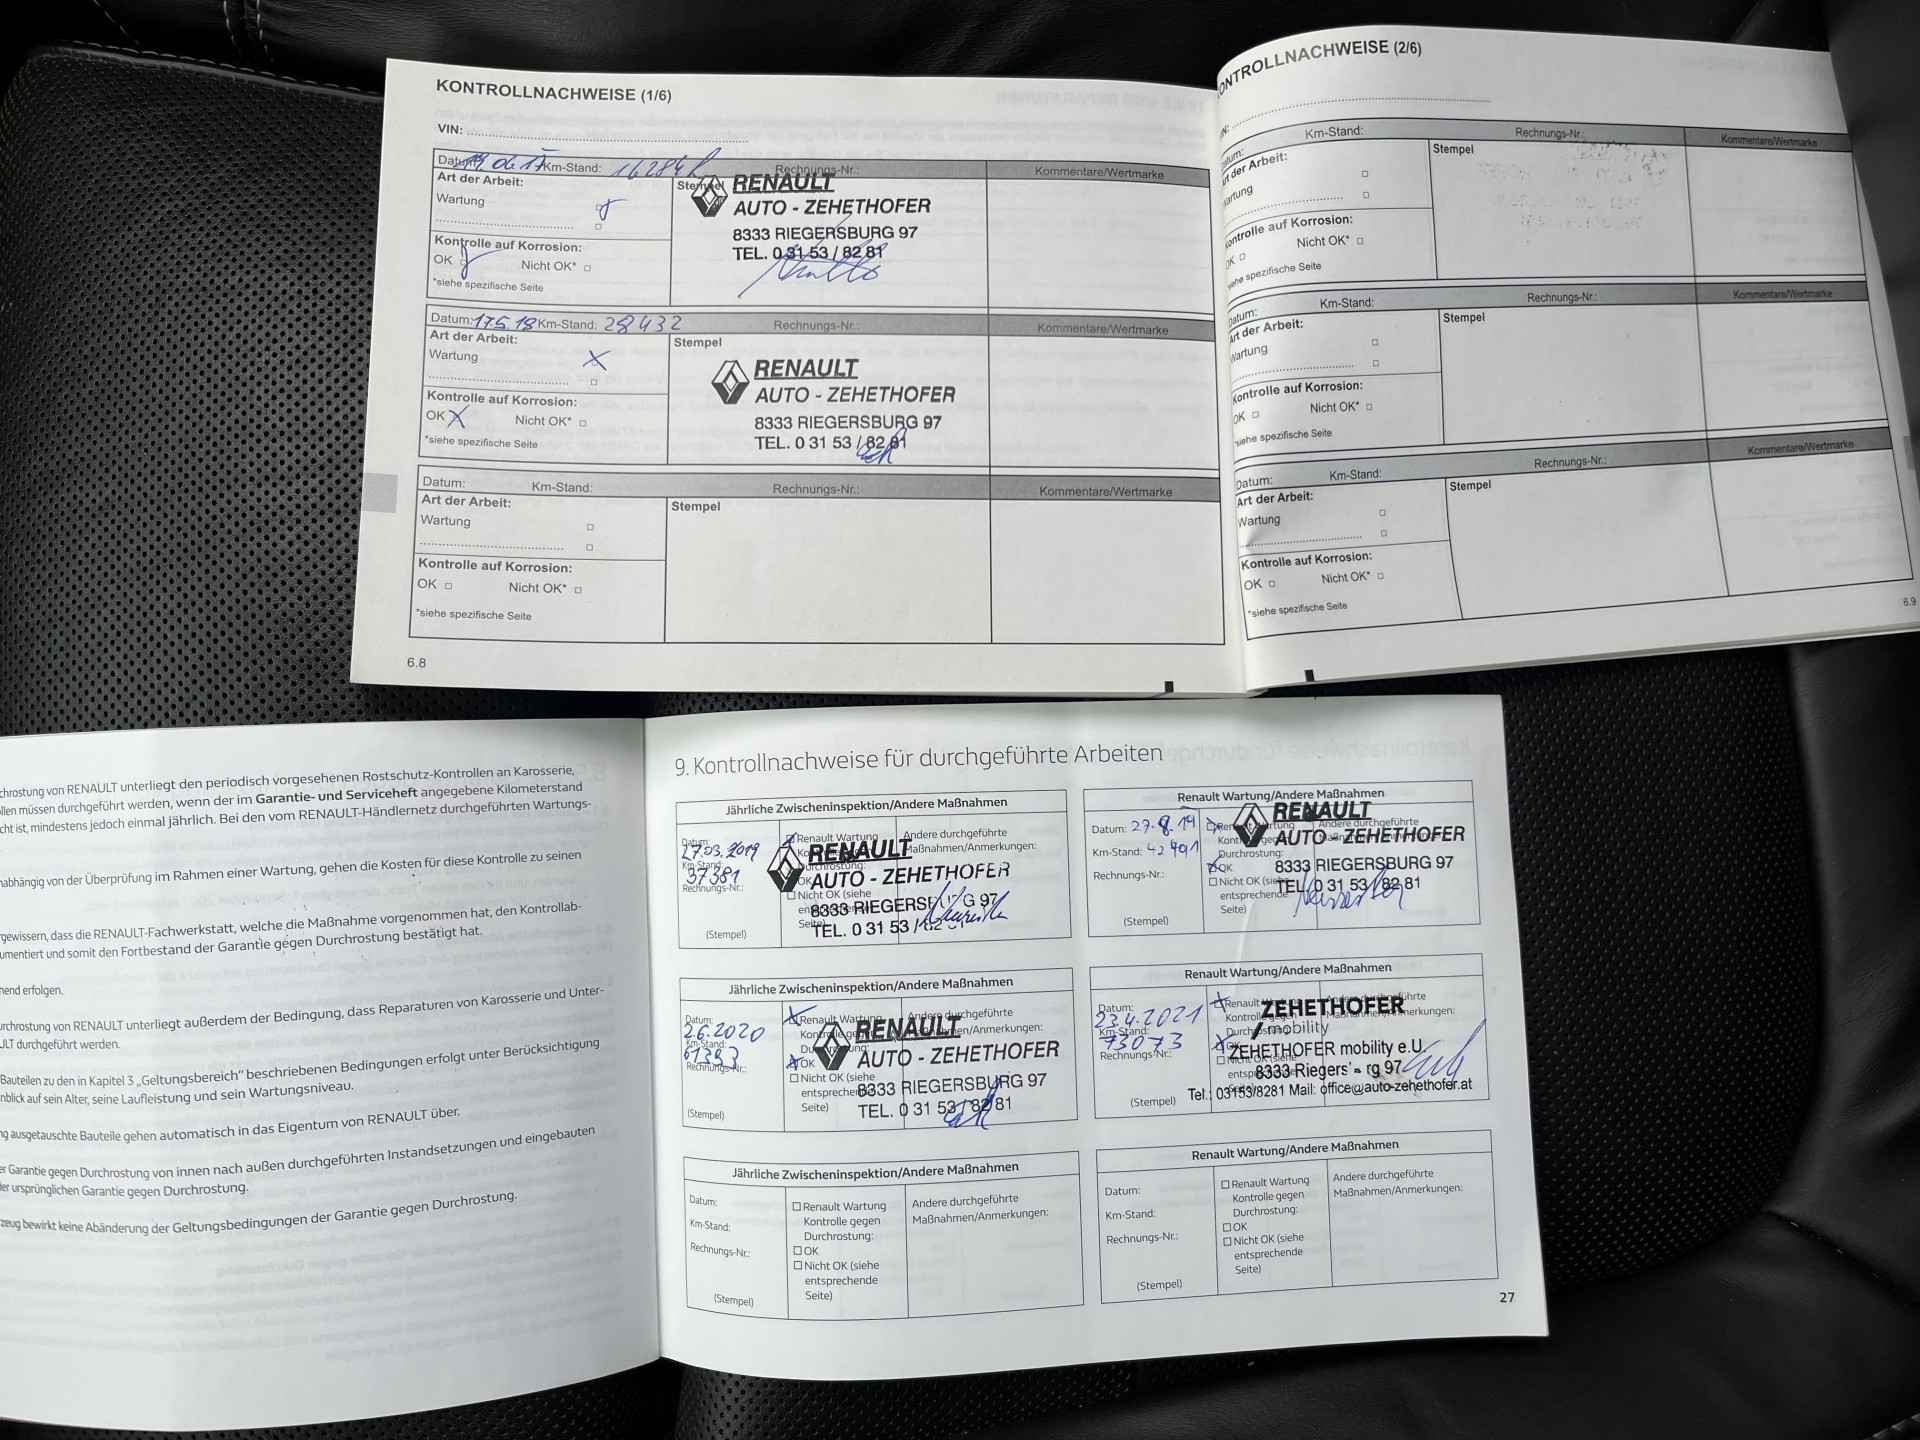 KONTROLLNACHWEISE (1/6)
VIN:
Datum: 06.17 Km-Stand: 16284 Rechnungs-Nr.: Kommentare/Wertmarke
Art der Arbeit:
Wartung
Kontrolle auf Korrosion:
OK Nicht OK*
*siehe spezifische Seite
Stempel
RENAULT
AUTO - ZEHETHOFER
8333 RIEGERSBURG 97
TEL. 0 31 53 / 82 81
Datum: 17.5.18 Km-Stand: 28432 Rechnungs-Nr.: Kommentare/Wertmarke
Art der Arbeit:
Wartung
Kontrolle auf Korrosion:
OK Nicht OK*
*siehe spezifische Seite
Stempel
RENAULT
AUTO - ZEHETHOFER
8333 RIEGERSBURG 97
TEL. 0 31 53 / 82 81
Datum: Km-Stand: Rechnungs-Nr.: Kommentare/Wertmarke
Art der Arbeit:
Wartung
Kontrolle auf Korrosion:
OK Nicht OK*
*siehe spezifische Seite
Stempel
6.8
ONTROLLNACHWEISE (2/6)
N:
Datum: Km-Stand: Rechnungs-Nr.: Kommentare/Wertmarke
Art der Arbeit:
Wartung
Kontrolle auf Korrosion:
OK Nicht OK*
siehe spezifische Seite
Stempel
Datum: Km-Stand: Rechnungs-Nr.: Kommentare/Wertmarke
Art der Arbeit:
Wartung
Kontrolle auf Korrosion:
OK Nicht OK*
*siehe spezifische Seite
Stempel
Datum: Km-Stand: Rechnungs-Nr.: Kommentare/Wertmarke
Art der Arbeit:
Wartung
Kontrolle auf Korrosion:
OK Nicht OK*
*siehe spezifische Seite
Stempel
6.9
chrostung von RENAULT unterliegt den periodisch vorgesehenen Rostschutz-Kontrollen an Karosserie,
ollen müssen durchgeführt werden, wenn der im Garantie- und Serviceheft angegebene Kilometerstand
cht ist, mindestens jedoch einmal jährlich. Bei den vom RENAULT-Händlernetz durchgeführten Wartungs-
nabhängig von der Überprüfung im Rahmen einer Wartung, gehen die Kosten für diese Kontrolle zu seinen
rgewissern, dass die RENAULT-Fachwerkstatt, welche die Maßnahme vorgenommen hat, den Kontrollab-
umentiert und somit den Fortbestand der Garantie gegen Durchrostung bestätigt hat.
hend erfolgen.
urchrostung von RENAULT unterliegt außerdem der Bedingung, dass Reparaturen von Karosserie und Unter-
ULT durchgeführt werden.
Bauteilen zu den in Kapitel 3 „Geltungsbereich" beschriebenen Bedingungen erfolgt unter Berücksichtigung
nblick auf sein Alter, seine Laufleistung und sein Wartungsniveau.
ng ausgetauschte Bauteile gehen automatisch in das Eigentum von RENAULT über.
er Garantie gegen Durchrostung von innen nach außen durchgeführten Instandsetzungen und eingebauten
der ursprünglichen Garantie gegen Durchrostung.
zeug bewirkt keine Abänderung der Geltungsbedingungen der Garantie gegen Durchrostung.
9. Kontrollnachweise für durchgeführte Arbeiten
Jährliche Zwischeninspektion/Andere Maßnahmen
Datum:
27.03.2019
Km-Stand:
37381
Rechnungs-Nr.:
(Stempel)
Renault Wartung
Durchrostung:
OK
Nicht OK (siehe
Seite)
Andere durchgeführte
Maßnahmen/Anmerkungen:
RENAULT
AUTO - ZEHETHOFER
8333 RIEGERSBURG 97
TEL. 0 31 53 / 82 81
Renault Wartung/Andere Maßnahmen
Datum: 27.8.19
Km-Stand: 42491
Rechnungs-Nr.:
(Stempel)
Renault Wartung
Kontrolle gegen
Durchrostung:
OK
Nicht OK (siehe
entsprechende
Seite)
Andere durchgeführte
RENAULT
AUTO - ZEHETHOFER
8333 RIEGERSBURG 97
TEL. 0 31 53 / 82 81
Jährliche Zwischeninspektion/Andere Maßnahmen
Datum:
2.6.2020
Km-Stand:
61393
Rechnungs-Nr.:
(Stempel)
Renault Wartung
Kontrolle gegen
Durchrostung:
OK
Nicht OK (siehe
entsprechende
Seite)
Andere durchgeführte
Maßnahmen/Anmerkungen:
RENAULT
AUTO - ZEHETHOFER
8333 RIEGERSBURG 97
TEL. 0 31 53 / 82 81
Renault Wartung/Andere Maßnahmen
Datum:
23.4.2021
Km-Stand:
73073
Rechnungs-Nr.:
(Stempel)
Renault Wartung
Kontrolle gegen
Durchrostung:
OK
Nicht OK (siehe
Andere durchgeführte
Maßnahmen/Anmerkungen:
ZEHETHOFER
mobility
ZEHETHOFER mobility e.U.
8333 Riegersburg 97
Tel.: 03153/8281 Mail: office@auto-zehethofer.at
Jährliche Zwischeninspektion/Andere Maßnahmen
Datum:
Km-Stand:
Rechnungs-Nr.:
(Stempel)
Renault Wartung
Kontrolle gegen
Durchrostung:
OK
Nicht OK (siehe
entsprechende
Seite)
Andere durchgeführte
Maßnahmen/Anmerkungen:
Renault Wartung/Andere Maßnahmen
Datum:
Km-Stand:
Rechnungs-Nr.:
(Stempel)
Renault Wartung
Kontrolle gegen
Durchrostung:
OK
Nicht OK (siehe
entsprechende
Seite)
Andere durchgeführte
Maßnahmen/Anmerkungen:
27